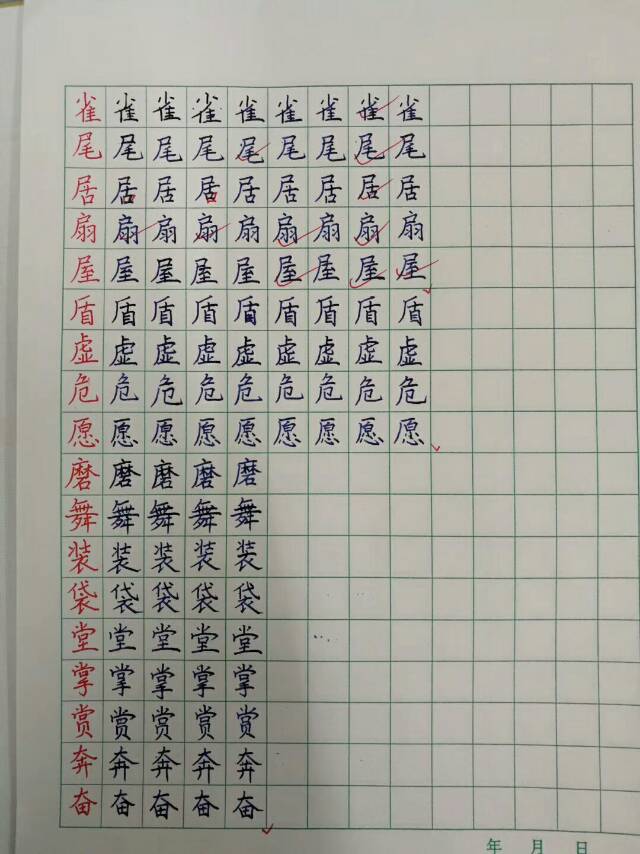 雀雀雀雀雀雀雀雀雀
尾尾尾尾尾尾尾尾尾
居居居居居居居居居
扇扇扇扇扇扇扇扇扇
屋屋屋屋屋屋屋屋屋
盾盾盾盾盾盾盾盾盾
虚虚虚虚虚虚虚虚虚
危危危危危危危危危
愿愿愿愿愿愿愿愿愿
磨磨磨磨磨
舞舞舞舞舞
装装装装装
袋袋袋袋袋
堂堂堂堂堂
掌掌掌掌掌
赏赏赏赏赏
奔奔奔奔奔
奋奋奋奋奋
年 月 日